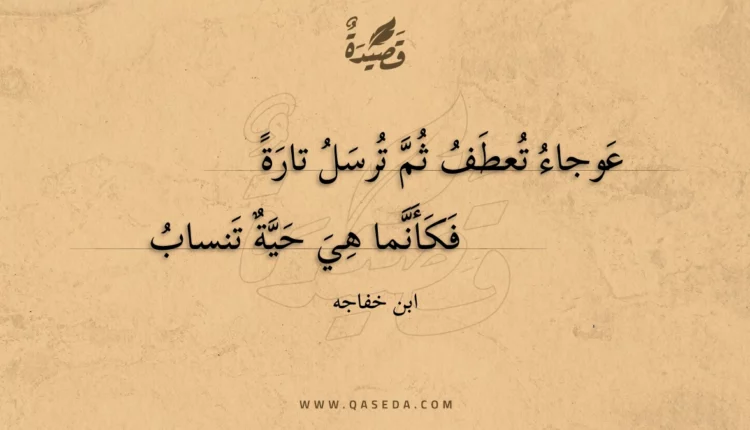 قَصِيدَةٌ
عَوجاءُ تُعطَفُ ثُمَّ تُرسَلُ تارَةً
فَكَأَنَّما هِيَ حَيَّةٌ تَنسابُ
ابن خفاجه
WWW.QASEDA.COM